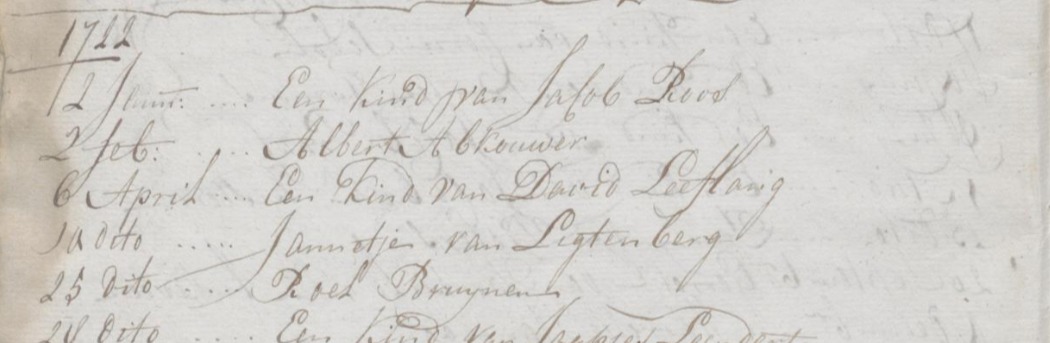 1722
12 Janu: .... Een Kind van Jacob Roos
2 feb: .... Albert Abkouwer
6 April ... Een Kind van David Leeflang
10 dito ..... Jannetje van Ligtenberg
25 dito .... Roel Bruynen
28 dito ..... Een Kind van